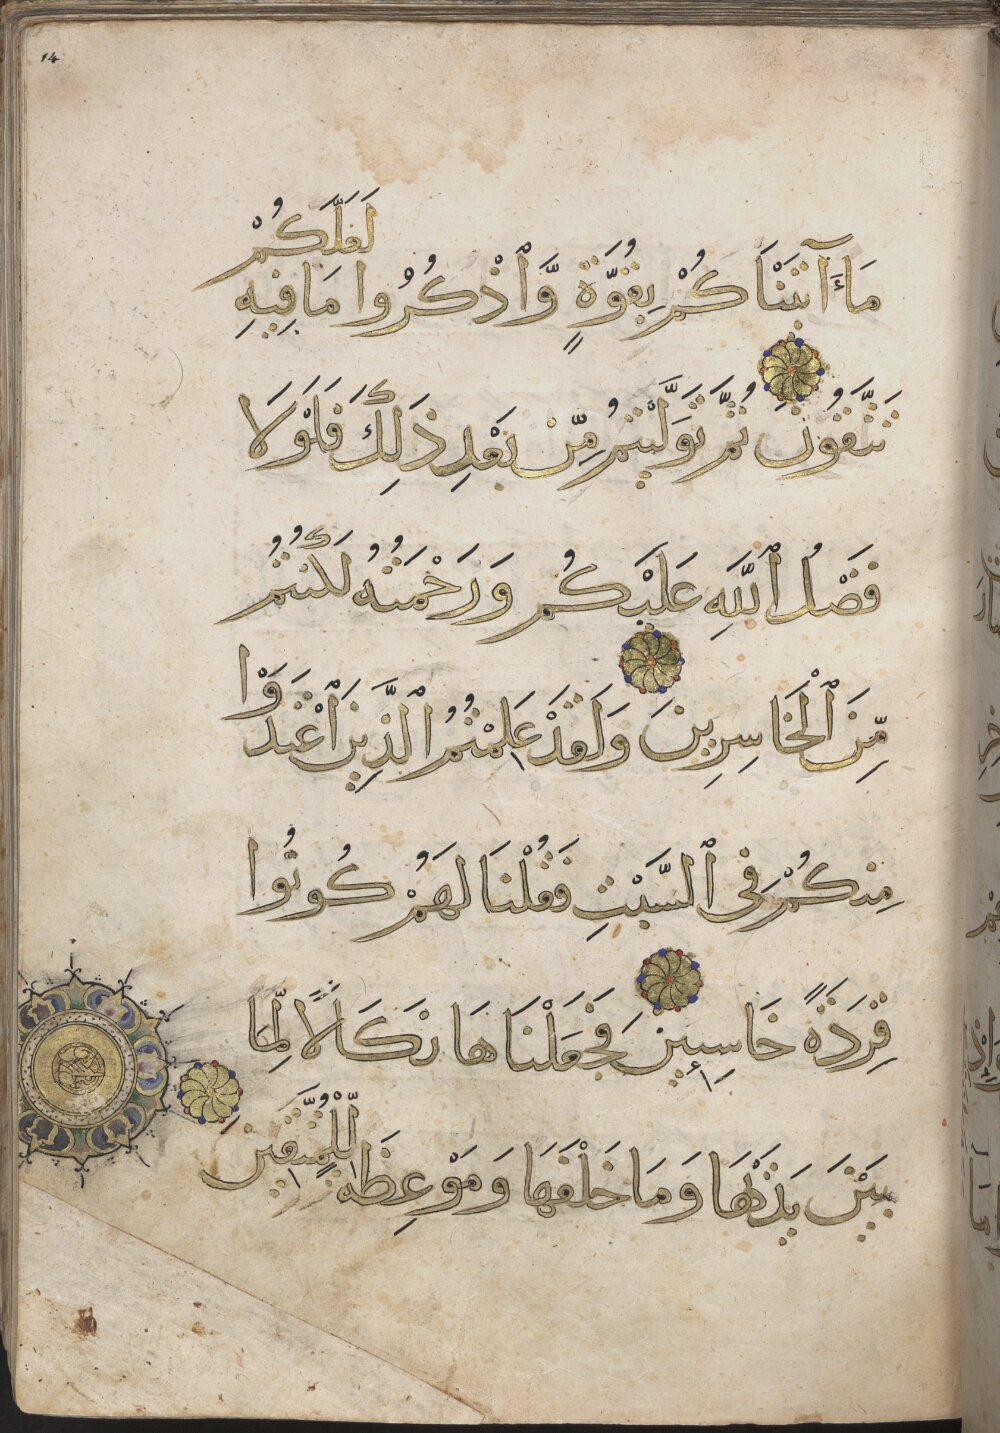 14
مَآ ءَاتَيْنَاكُمْ بِقُوَّةٍ وَّٱذْكُرُوا مَا فِيهِ لَعَلَّكُمْ
تَتَّقُونَ ثُمَّ تَوَلَّيْتُمْ مِّنْ بَعْدِ ذَٰلِكَ فَلَوْلَا
فَضْلُ ٱللَّهِ عَلَيْكُمْ وَرَحْمَتُهُ لَكُنْتُمْ
مِّنَ ٱلْخَاسِرِينَ وَلَقَدْ عَلِمْتُمُ ٱلَّذِينَ ٱعْتَدَوْا
مِنكُمْ فِي ٱلسَّبْتِ فَقُلْنَا لَهُمْ كُونُوا
قِرَدَةً خَاسِئِينَ فَجَعَلْنَاهَا نَكَالًا لِّمَا
بَيْنَ يَدَيْهَا وَمَا خَلْفَهَا وَمَوْعِظَةً لِّلْمُتَّقِينَ